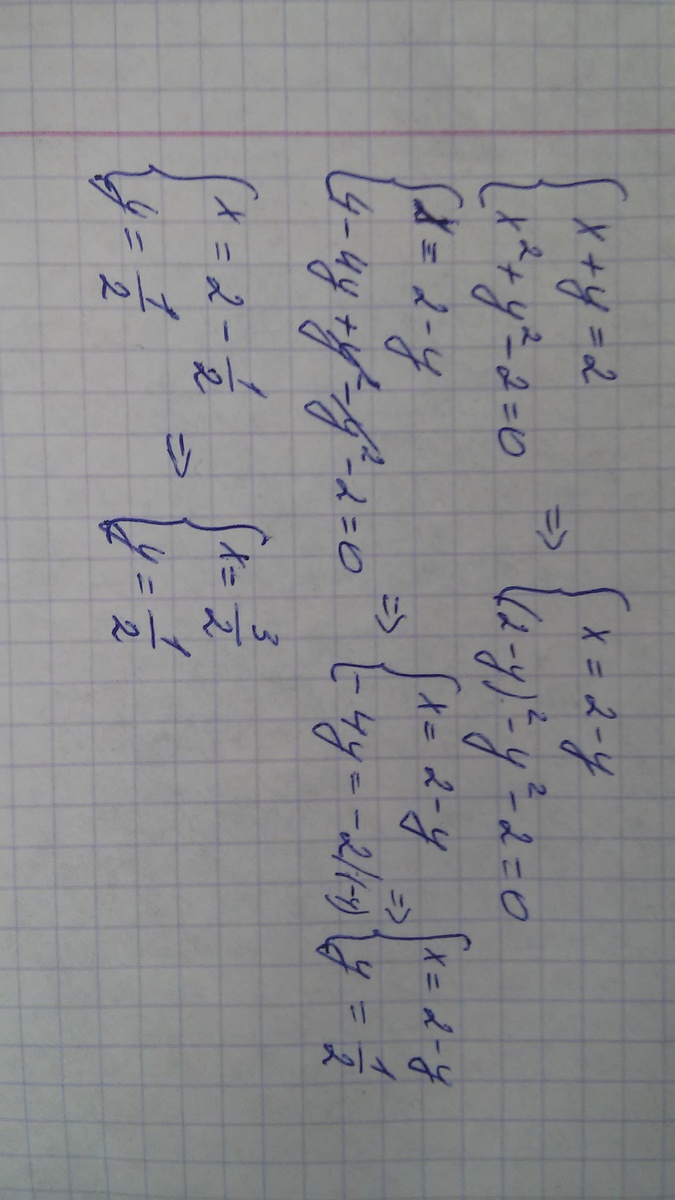 { x + y = 2
{ x² + y² - 2 = 0 ⇒ { x = 2 - y
{ (2 - y)² - y² - 2 = 0
{ x = 2 - y
{ 4 - 4y + y² - y² - 2 = 0 ⇒ { x = 2 - y
{ - 4y = - 2 /(-4) ⇒ { x = 2 - y
{ y = 1/2
{ x = 2 - 1/2
{ y = 1/2 ⇒ { x = 3/2
{ y = 1/2